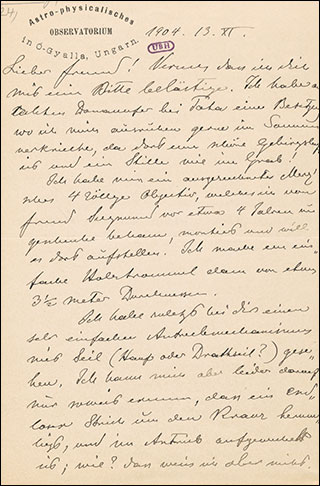 24,
Astro-physicalisches
OBSERVATORIUM
in Ó-Gyalla, Ungarn.
1904. 13. XI.
UBH
Lieber Freund! Verzeih dass ich dich
mit ein Bitte belästige. Ich habe a
Donauufer bei Tata eine Besitz
wo ich mich ausruhen gerne im Sommer
da dort eine schöne Gebirgs
ist und ein Stille wie im Grab!
Ich habe mir ein ausgezeichnetes Merz
4 zöllige Objectiv, welches ich vom
Freund vor etwa 4 Jahren im
geschenke bekam, montirt und will
es dort aufstellen. Ich mache ein ein
fache Holztrommel dazu von etwa
3½ meter Durchmesser.
Ich habe bei Dir einen
sehr einfachen Antriebmechanismus
mit Seil (Hanf oder Drathseil?) gese
hen. Ich kann mich aber leider darauf
nur soweit erinnern, dass ein end
lose Strick um den Kranz herum
liegt, und im Antrieb aufgewickelt
ist; wie? das weiss ich aber nicht.